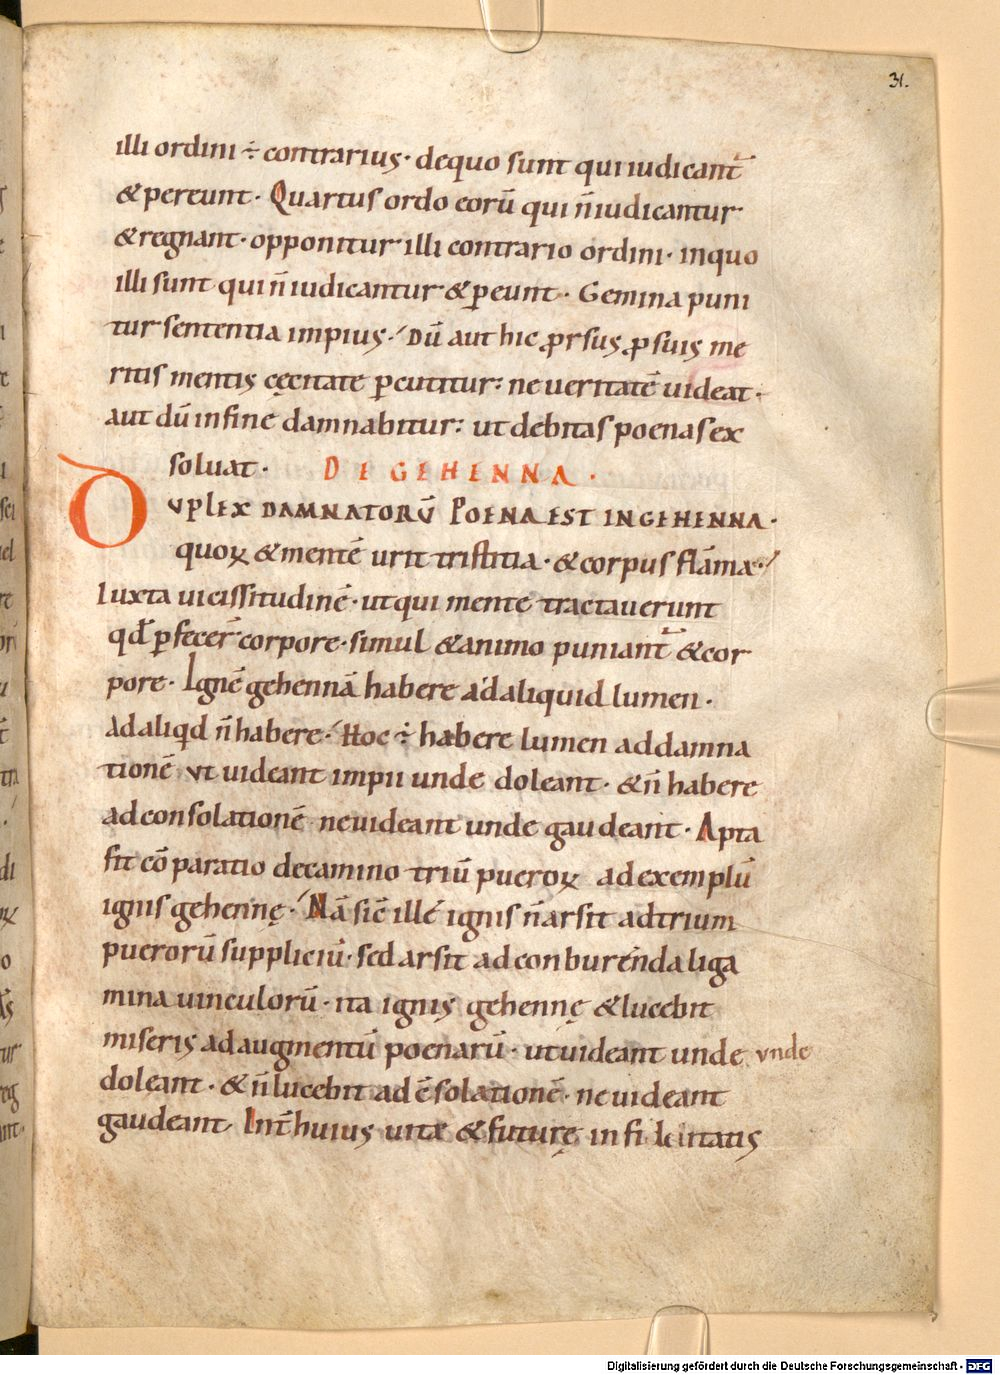 31.
illi ordini ÷ contrarius· dequo sunt qui iudicant̄
& pereunt· Quartus ordo eorū qui n̄ iudicantur·
& regnant· opponitur illi contrario ordini· inquo
illi sunt qui n̄ iudicantur & ꝑeunt· Gemina puni
tur sententia impius·́ Dū aut hic ꝓrsus ꝓ suis me
ritis mentis cęcitate ꝑcutitur: ne ueritatē uideat·
aut dū in fine damnabitur: ut debitas poenas ex
soluat· DE GEHENNA·
DVPLEX DAMNATORŪ POENA EST IN GEHENNA·
quoꝝ & mentē urit tristitia· & corpus flāma·́
Iuxta uicissitudinē· ut qui mente tractauerunt
qđ ꝑfecer̄ corpore· simul & animo puniant̄ & cor
pore· Ignē gehennā habere ad aliquid lumen·
ad aliqid n̄ habere·́ Hoc ÷ habere lumen ad damna
tionē vt uideant impii unde doleant· & n̄ habere
ad consolationē ne uideant unde gaudeant· Apta
fit cōparatio decamino triū pueroꝝ ad exemplū
ignis gehennę·́ Nā sic̄ ille ignis n̄ arsit ad trium
puerorū suppliciū· sed arsit ad conburenda liga
mina uinculorū· ita ignis gehennę & lucebit
miseris ad augmentū poenarū· ut uideant unde vnde
doleant· & n̄ lucebit ad c̄solationē· ne uideant
gaudeant· Int̄ huius uitæ & futurę infelicitatis